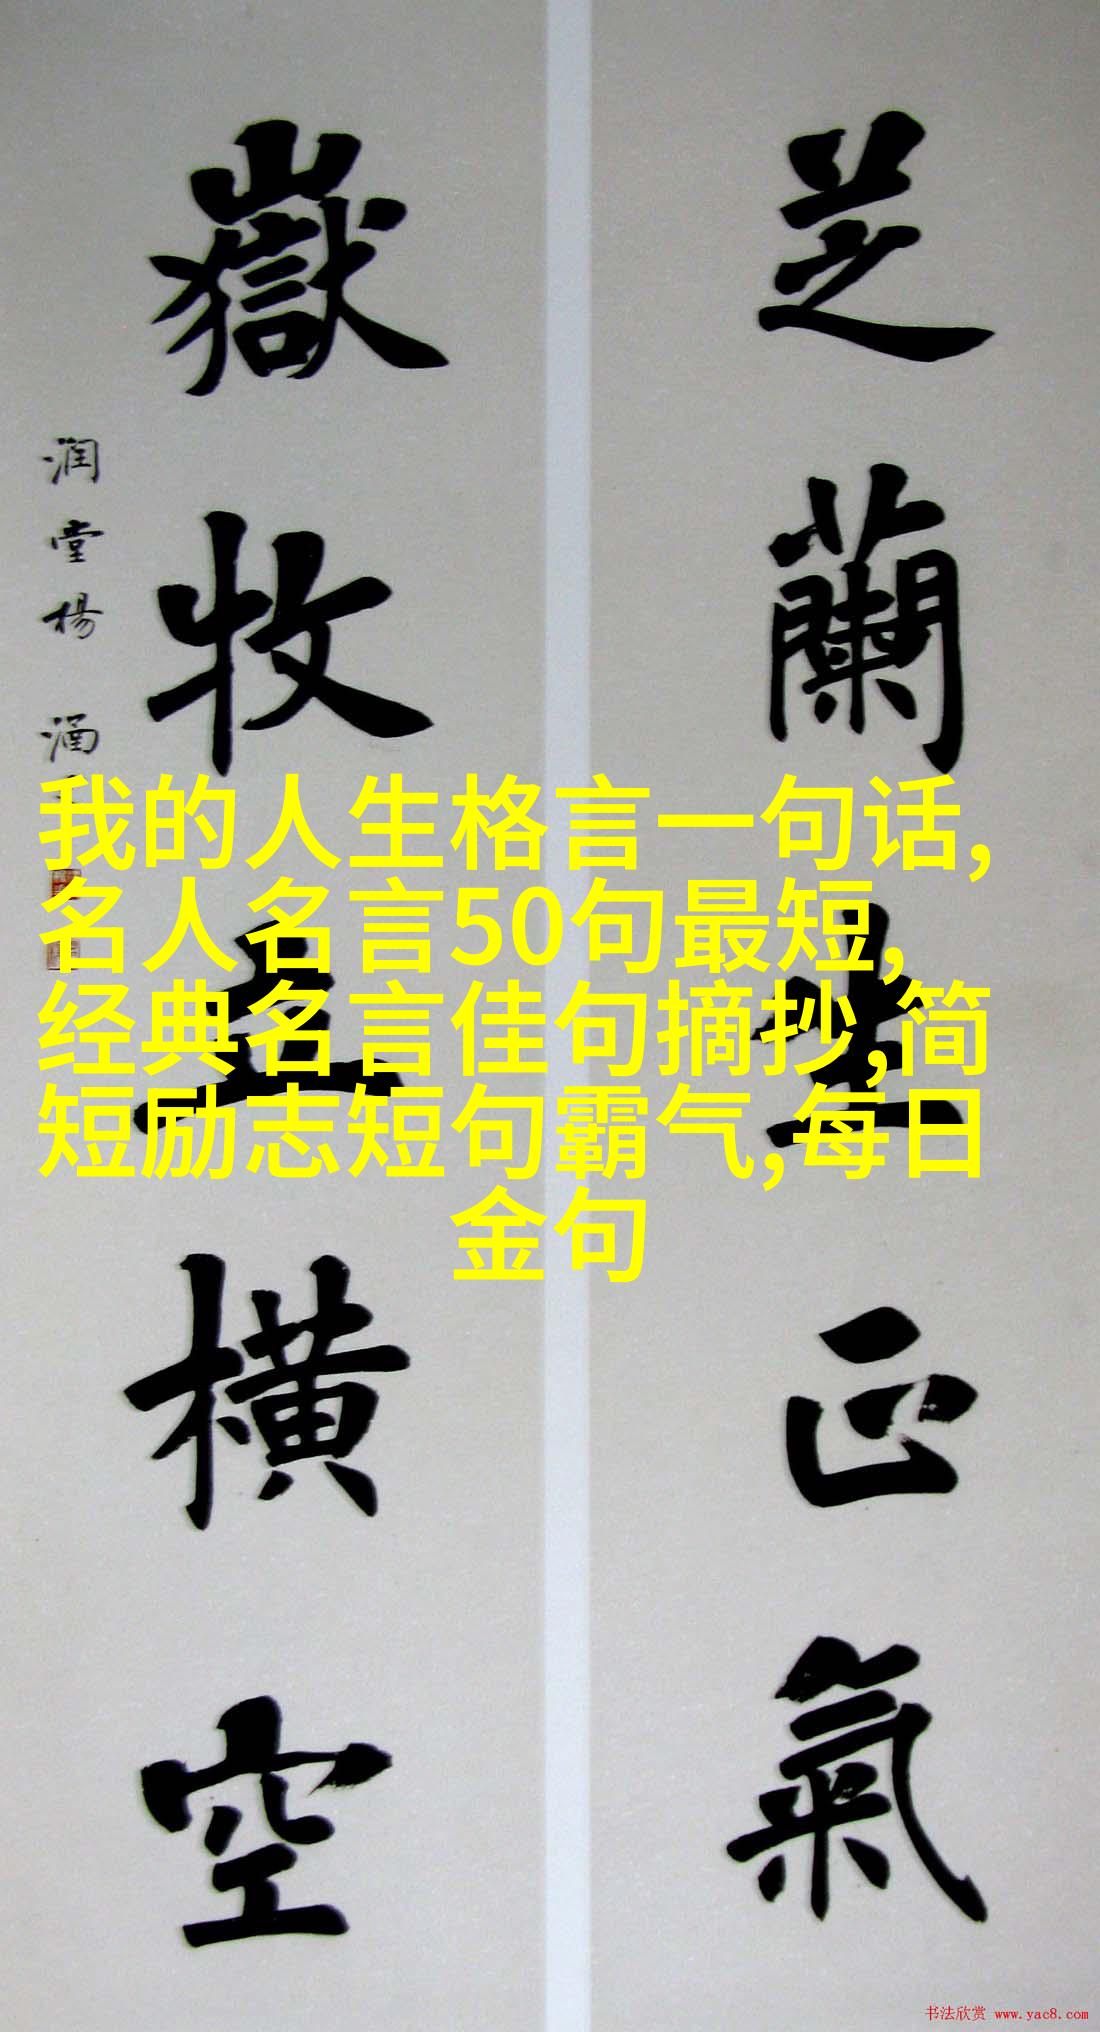 芝蘭生正氣
嶽牧橫空
润堂楊涌
我的人生格言一句话,
名人名言50句最短,
经典名言佳句摘抄,简
短励志短句霸气,每日
金句
书法欣赏 www.yac8.com